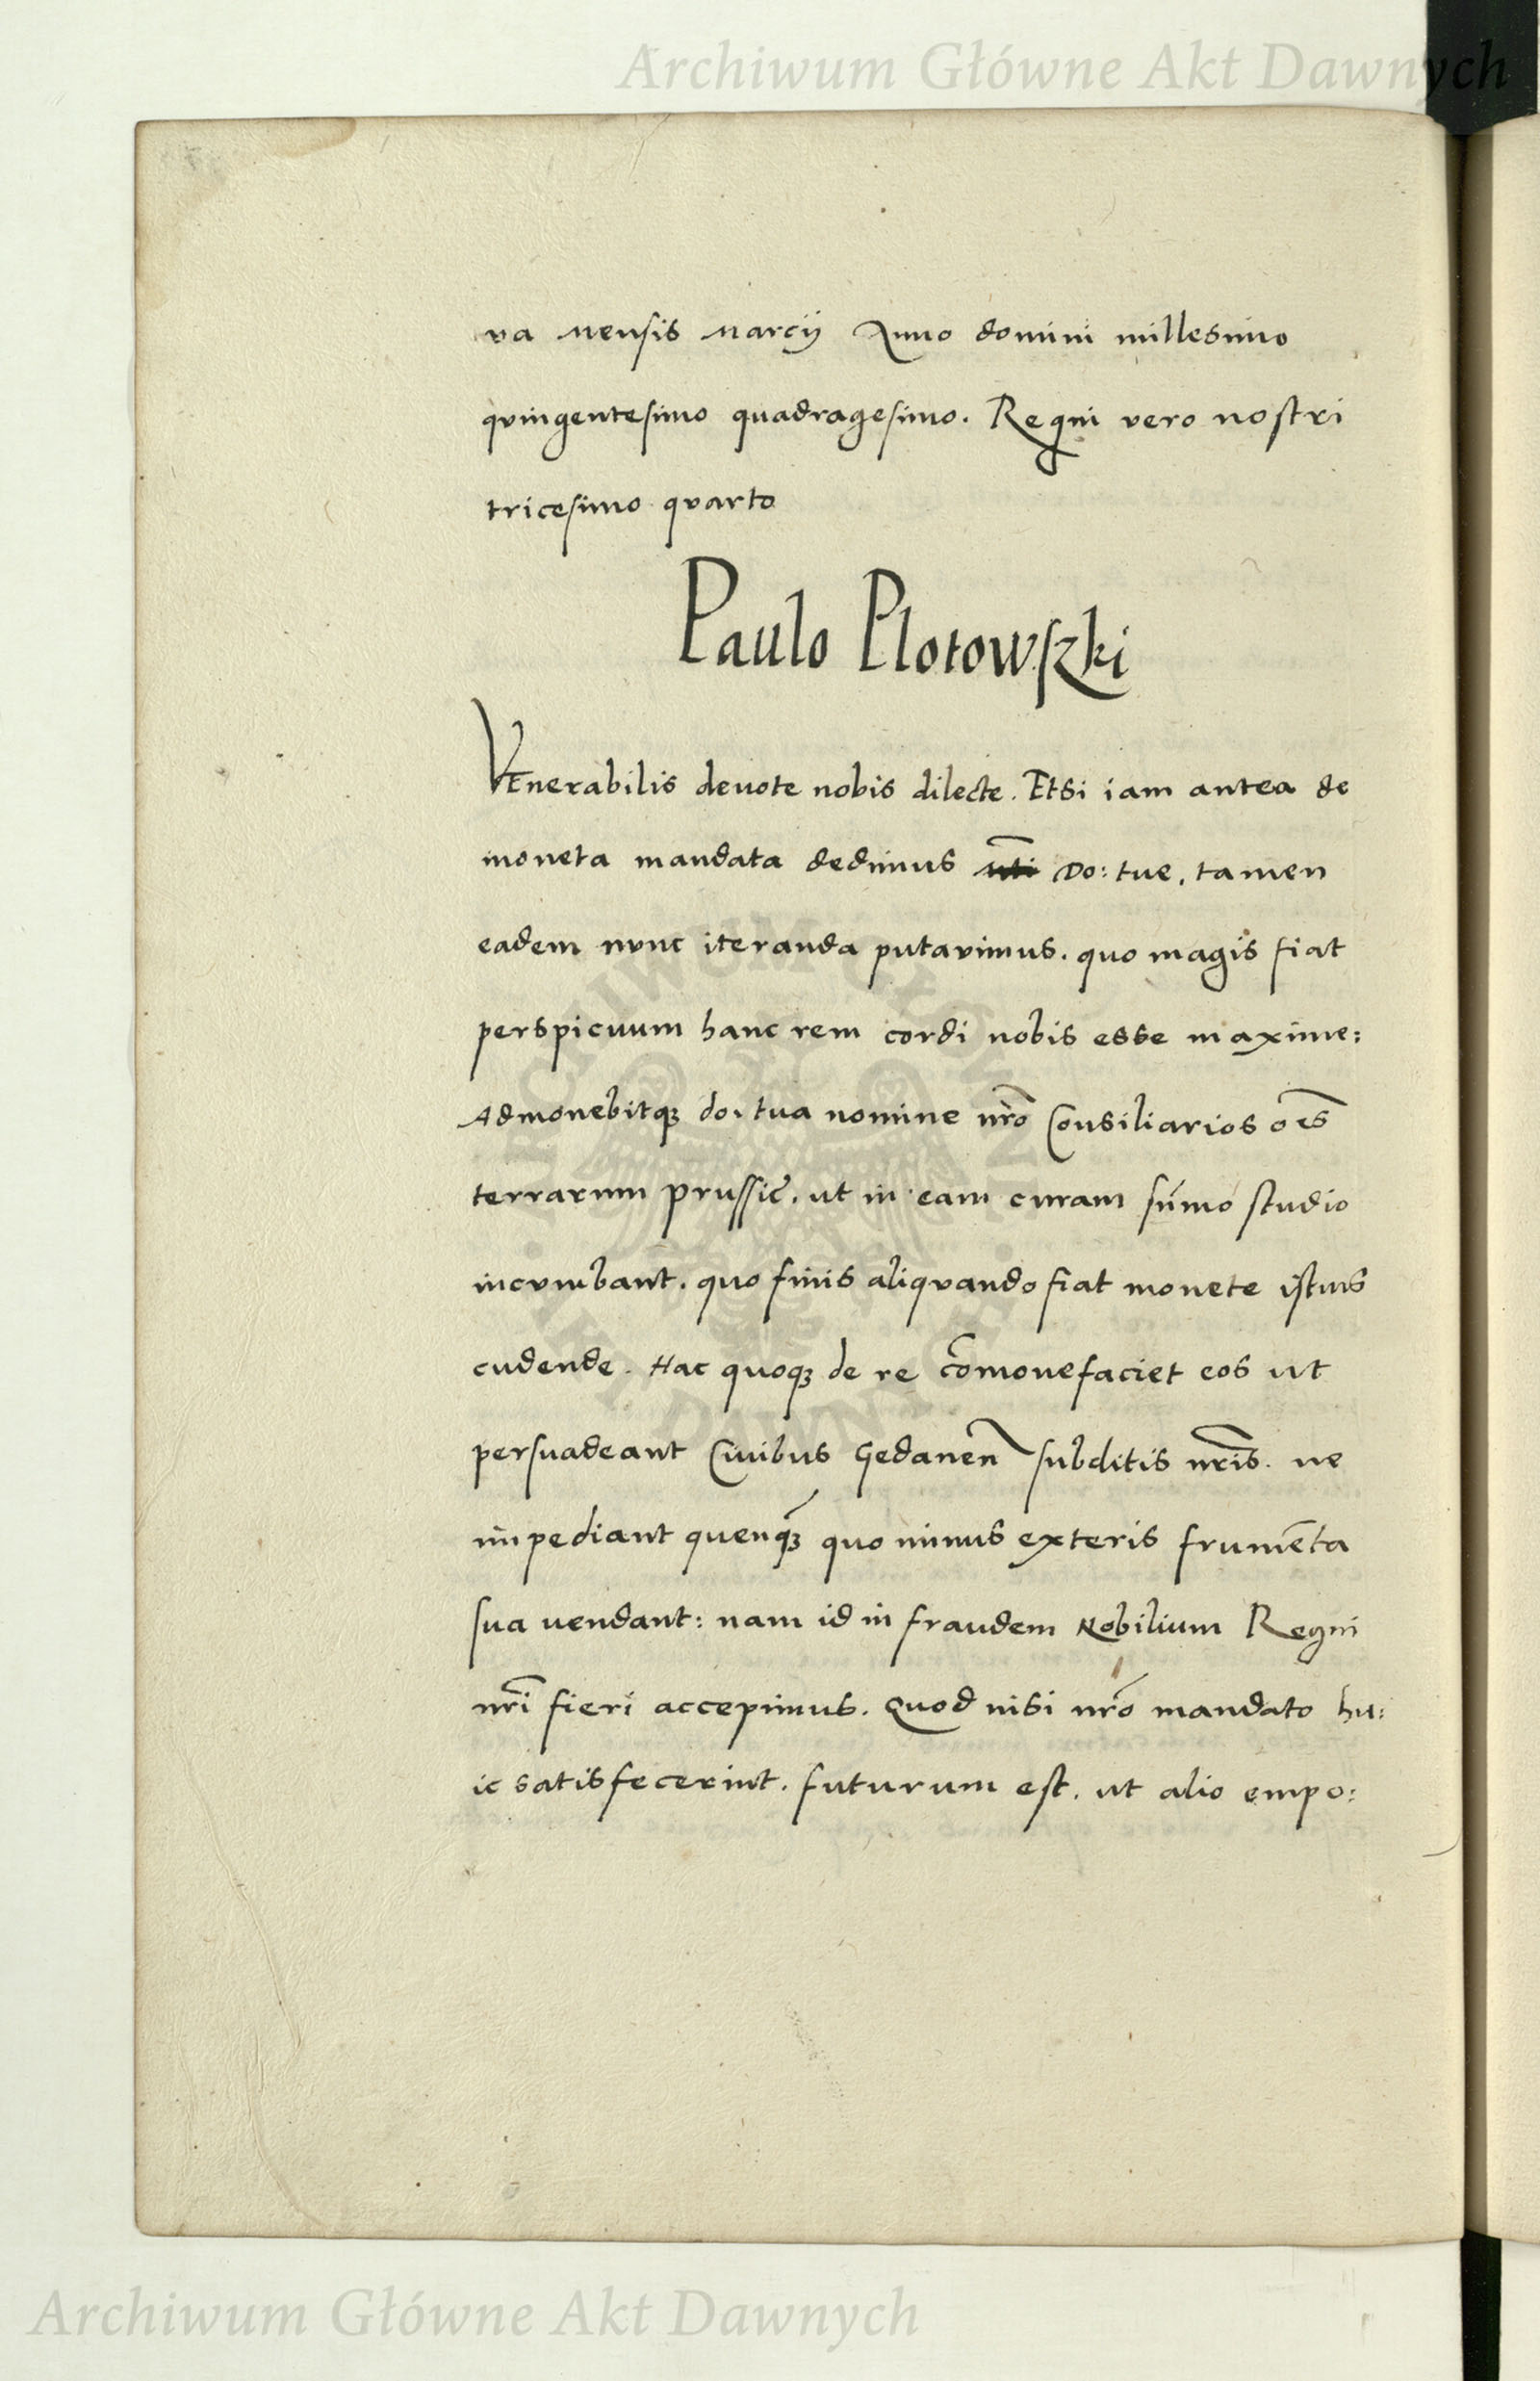 Archiwum Główne Akt Dawnych
va Mensis Marcÿ Anno domini millesimo
qvingentesimo quadragesimo. Regni vero nostri
tricesimo qvarto
Paulo Plotowſzki
Venerabilis deuote nobis dilecte. Etsi iam antea de
moneta mandata dedimus Do: tue, tamen
eadem nvnc iteranda putavimus. quo magis fiat
perspicuum hanc rem cordi nobis esse maxime:
Admonebitqꝫ do. tua nomine nr̃o Consiliarios oẽs
terrarum prussie. ut in eam curam sum̃o studio
incvmbant. quo finis aliqvando fiat monete istius
cudende. Hac quoqꝫ de re cõmonefaciet eos ut
persuadeant Ciuibus Gedanen̄ subditis nr̃is. ne
impediant quenqꝫ quo minus exteris frumẽta
sua uendant: nam id in fraudem Nobilium Regni
nr̃i fieri accepimus. Quod nisi nr̃o mandato hu:
ic satisfecerint. futurum est. ut alio empo:
Archiwum Główne Akt Dawnych